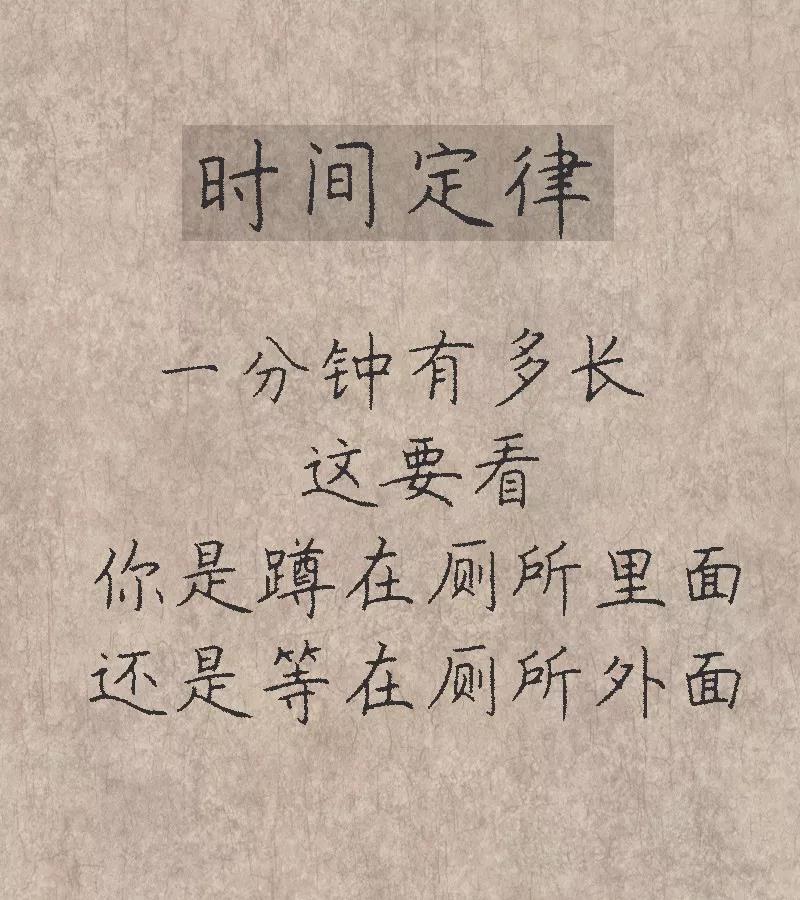 时间定律
一分钟有多长
这要看
你是蹲在厕所里面
还是等在厕所外面